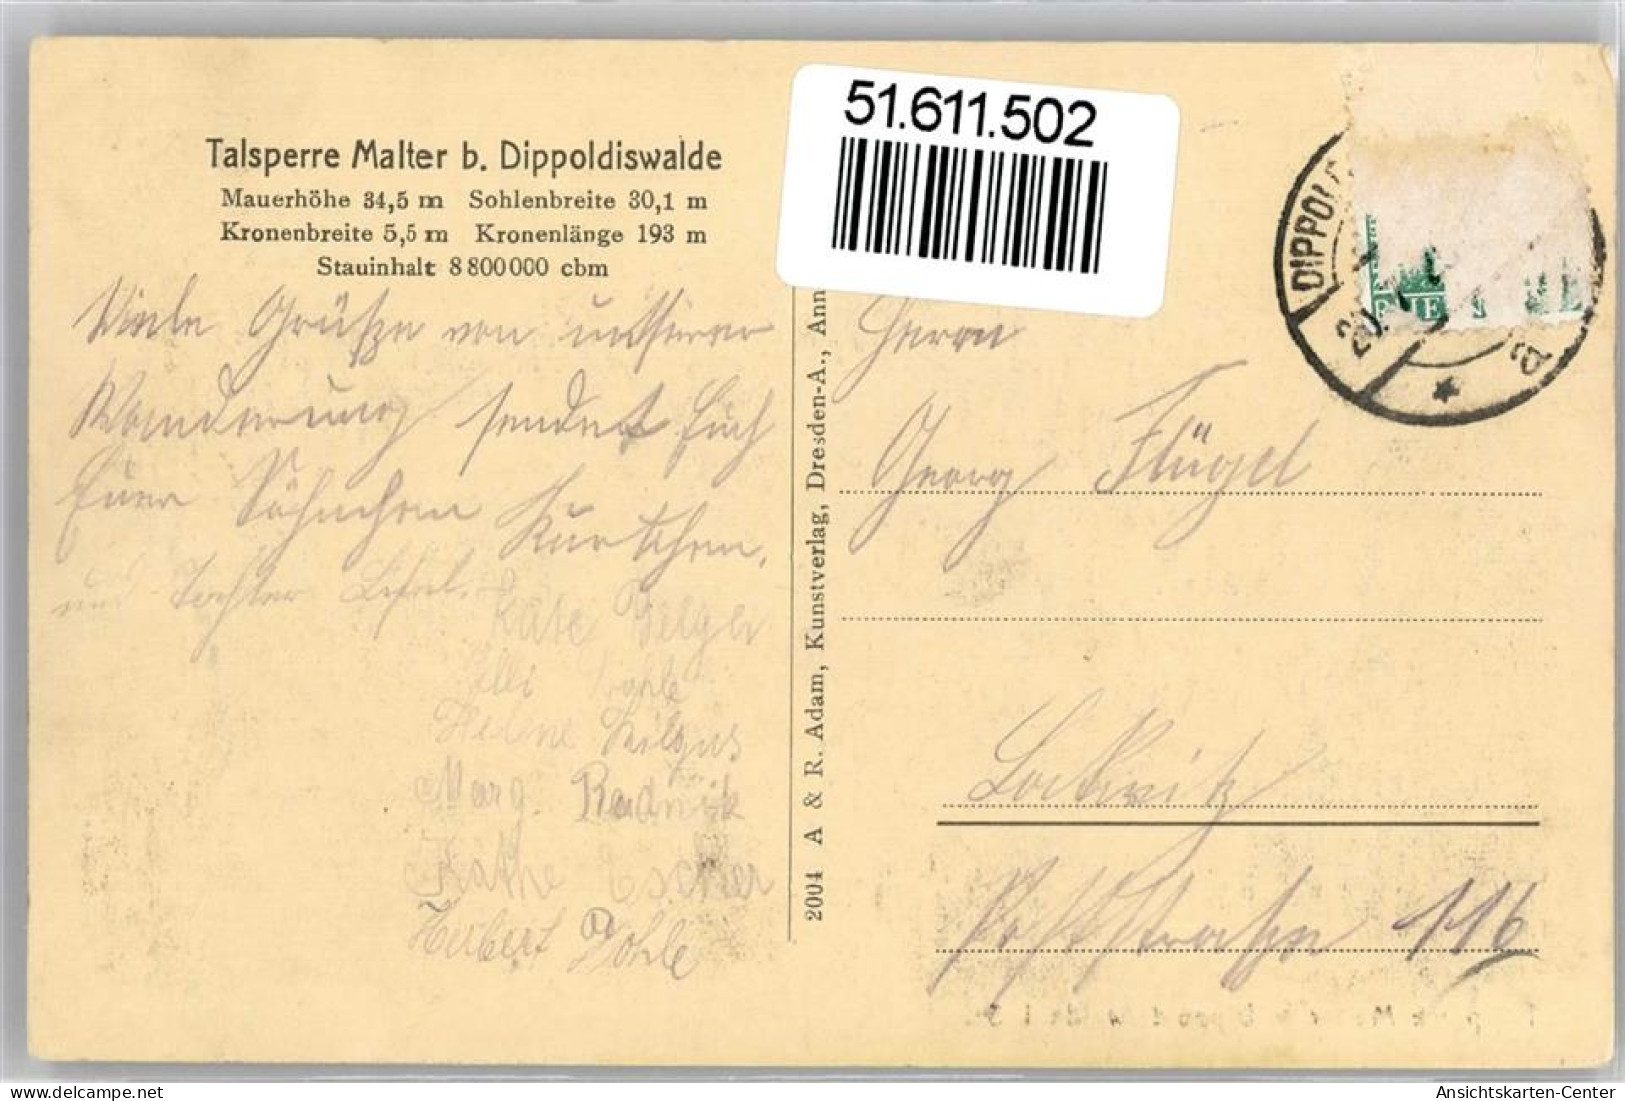 51.611.502
Talsperre Malter b. Dippoldiswalde
Mauerhöhe 34,5 m Sohlenbreite 30,1 m
Kronenbreite 5,5 m Kronenlänge 193 m
Stauinhalt 8 800 000 cbm
Viele Grüße von unserer
Wanderung sendet Euch
Euer Söhnchen Kurtchen,
und Tochter
Käte
Helene Hilgus
Marg. Radnik
Käthe Escher
Hubert Pohle
2004 A & R. Adam, Kunstverlag, Dresden-A., Ann
DIPPOLD
20.
a
Herrn
Georg Flügel
Lockwitz
Poststraße 116
Ansichtskarten-Center